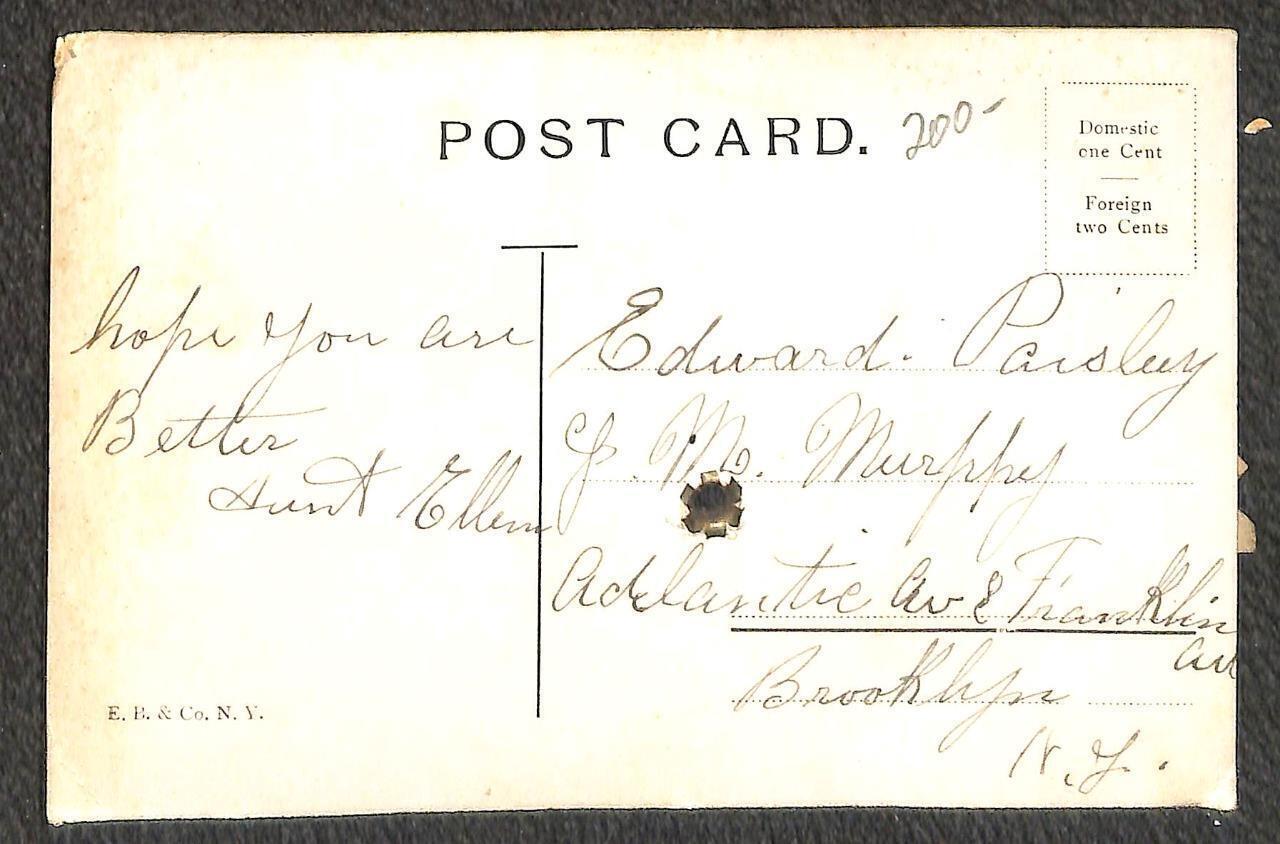 POST CARD.
200-
Domestic
one Cent
Foreign
two Cents
hope you are
Better
Aunt Ellen
Edward. Paisley
M. Murppy
Adelantic Av & Franklin
Av
Brooklyn
N.Y.
E. B. & Co. N. Y.